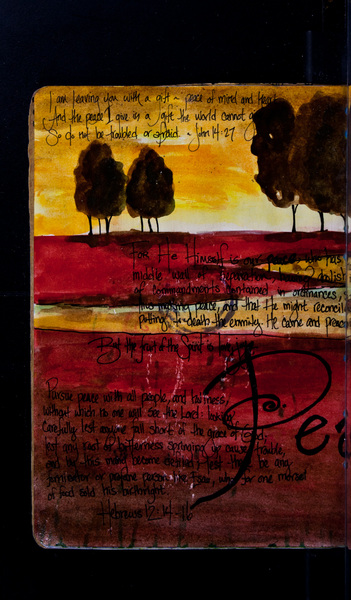 I am leaving you with a gift ~ peace of mind and heart
And the peace I give is a gift the world cannot g
So do not be troubled or afraid. ~ John 14:27
For He Himself is our peace, who has
middle wall of separation
of commandments contained in ordinances,
thus making peace, and that He might reconcil
putting to death the enmity. He came and preac
But the fruit of the Spirit is love, joy,
Pe
Pursue peace with all people, and holiness,
without which no one will see the Lord: looking
carefully lest anyone fall short of the grace of God;
lest any root of bitterness springing up cause trouble,
and by this many become defiled; lest there be any
fornicator or profane person like Esau, who for one morsel
of food sold his birthright.
Hebrews 12:14-16